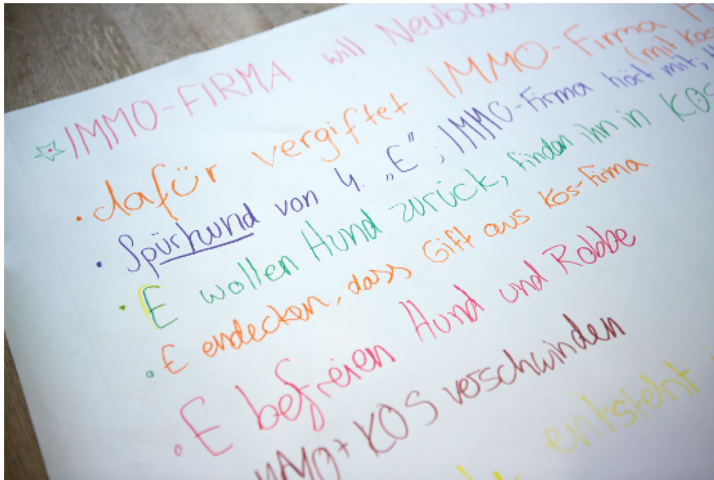 IMMO-FIRMA will Neubau
• dafür vergiftet IMMO-Firma
(mit Kos
• Spürhund von 4. „E“; IMMO-Firma hört mit,
• E wollen Hund zurück, finden ihn in KOS
• E endecken, dass Gift aus Kos-Firma
• E befreien Hund und Robbe
IMMO+KOS verschwinden
entsteht